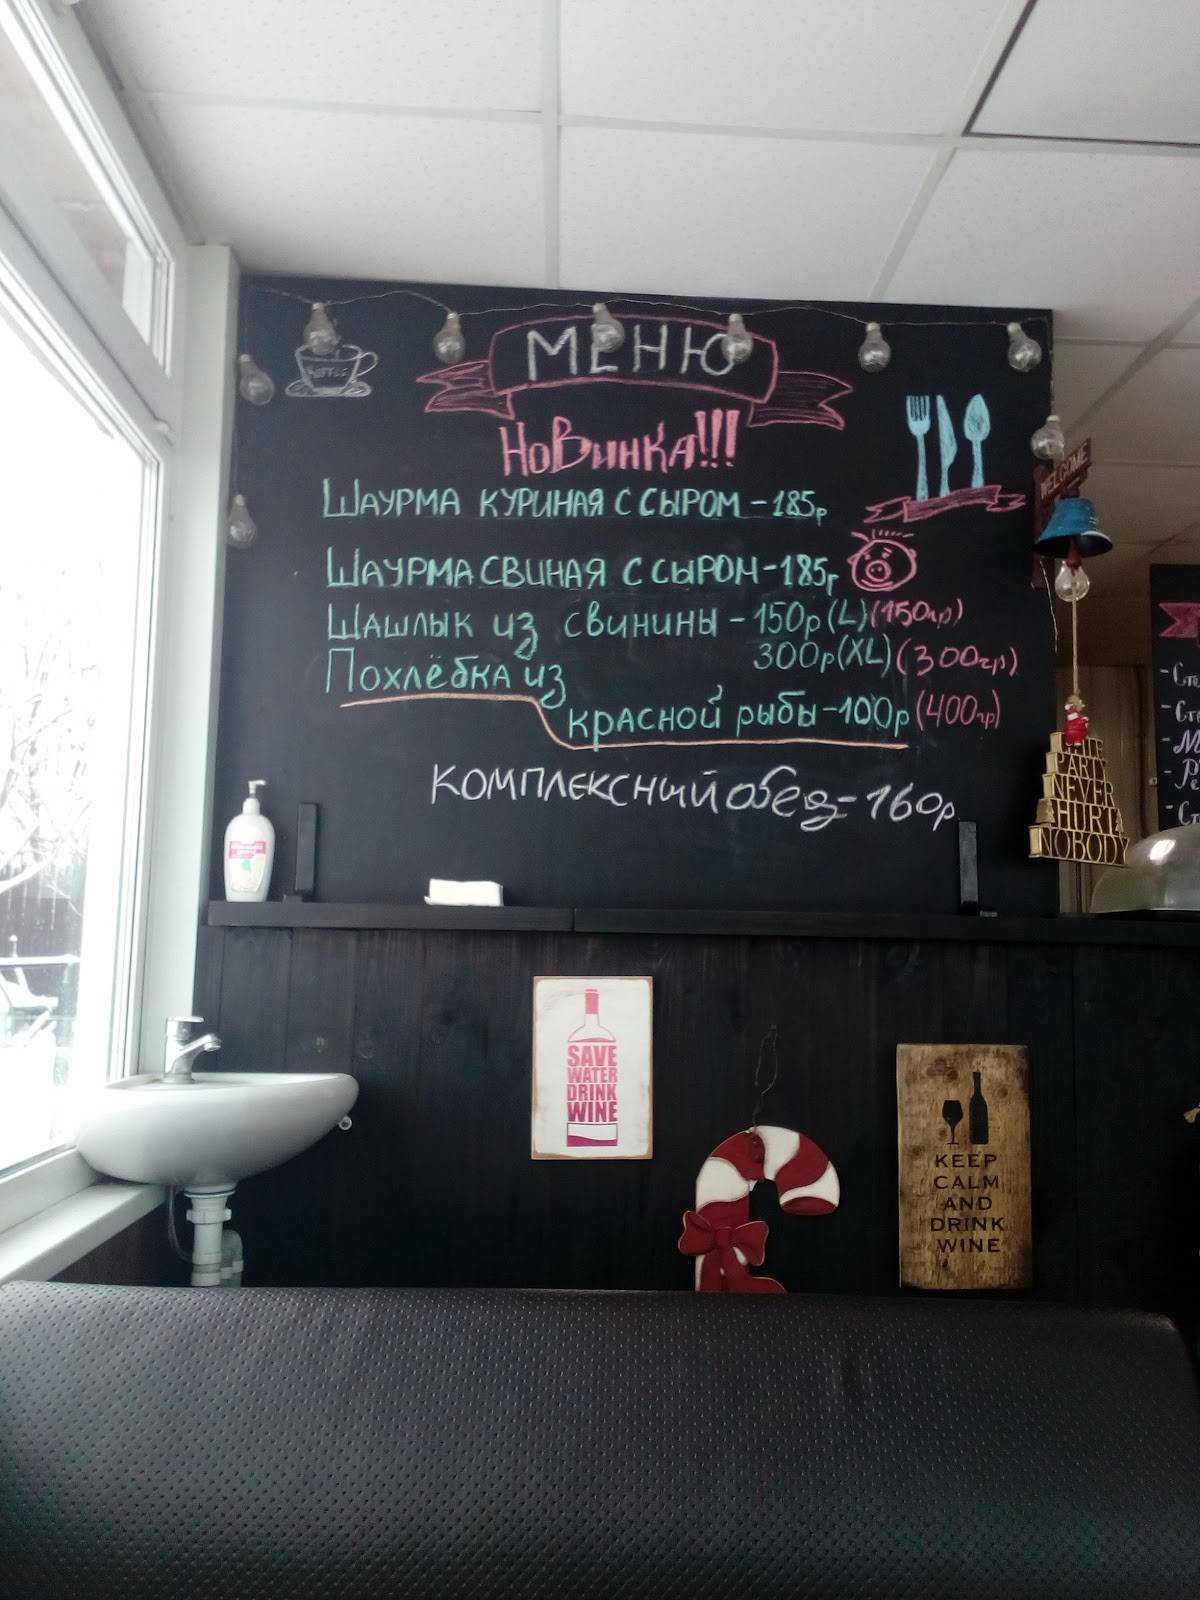 МЕНЮ
KOFFEE
НОВИНКА!!!
ШАУРМА КУРИНАЯ С СЫРОМ - 185р
ШАУРМА СВИНАЯ С СЫРОМ - 185р
ШАШЛЫК ИЗ СВИНИНЫ - 150р (L) (150гр)
300р (XL) (300гр)
ПОХЛЁБКА ИЗ
КРАСНОЙ РЫБЫ - 100р (400гр)
КОМПЛЕКСНЫЙ обед - 160р
WELCOME
PARTY
NEVER
HURT
NOBODY
SAVE
WATER
DRINK
WINE
KEEP
CALM
AND
DRINK
WINE